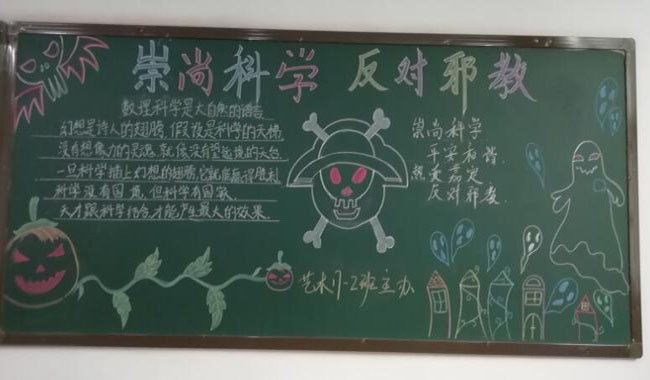 崇尚科学 反对邪教
数理科学是大自然的语言
幻想是诗人的翅膀,假设是科学的天梯
没有想象力的灵魂,就像没有望远镜的天文台
一旦科学插上幻想的翅膀,它就能赢得胜利
科学没有国境,但科学有国家
天才跟科学结合才能产生最大的效果.
崇尚科学
平安和谐
热爱嘉定
反对邪教.
艺术17-2班主办